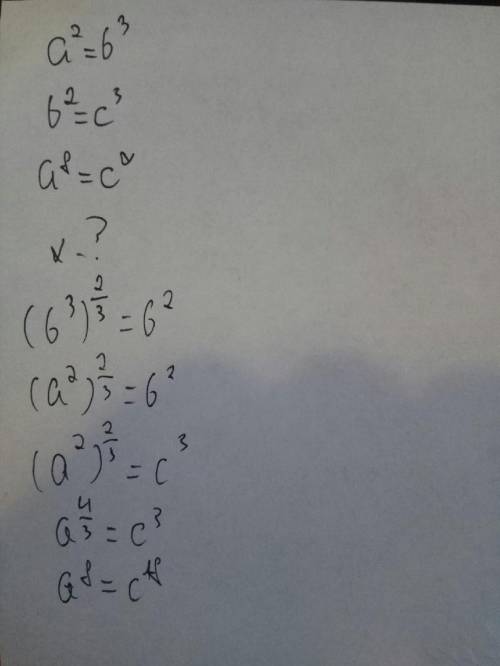 a² = b³
b² = c³
a⁸ = cˣ
x - ?
(b³)^(2/3) = b²
(a²)^(2/3) = b²
(a²)^(2/3) = c³
a^(4/3) = c³
a⁸ = c¹⁸